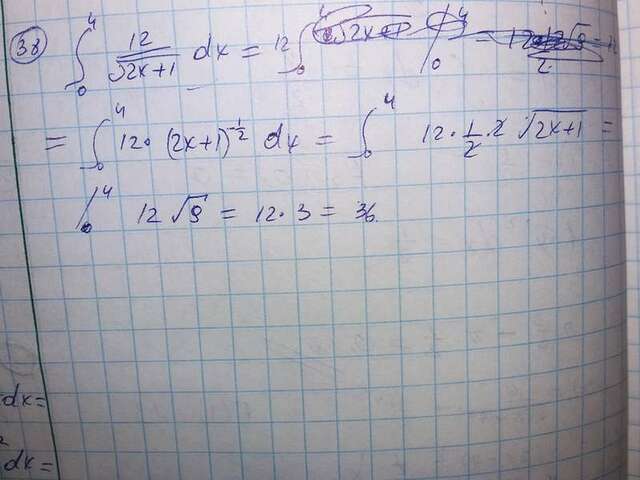 38 ∫₀⁴ 12/√(2x+1) dx = 12 ∫₀⁴
= ∫₀⁴ 12 · (2x+1)^(-1/2) dx = ∫₀⁴ 12 · 1/2 · 2 √(2x+1) =
|₀⁴ 12 √9 = 12 · 3 = 36
dx=
dx=